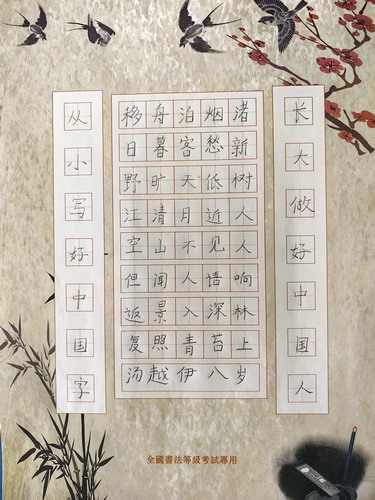 从小写好中国字
移舟泊烟渚
日暮客愁新
野旷天低树
江清月近人
空山不见人
但闻人语响
返景入深林
复照青苔上
汤越伊八岁
长大做好中国人
全國書法等級考試專用